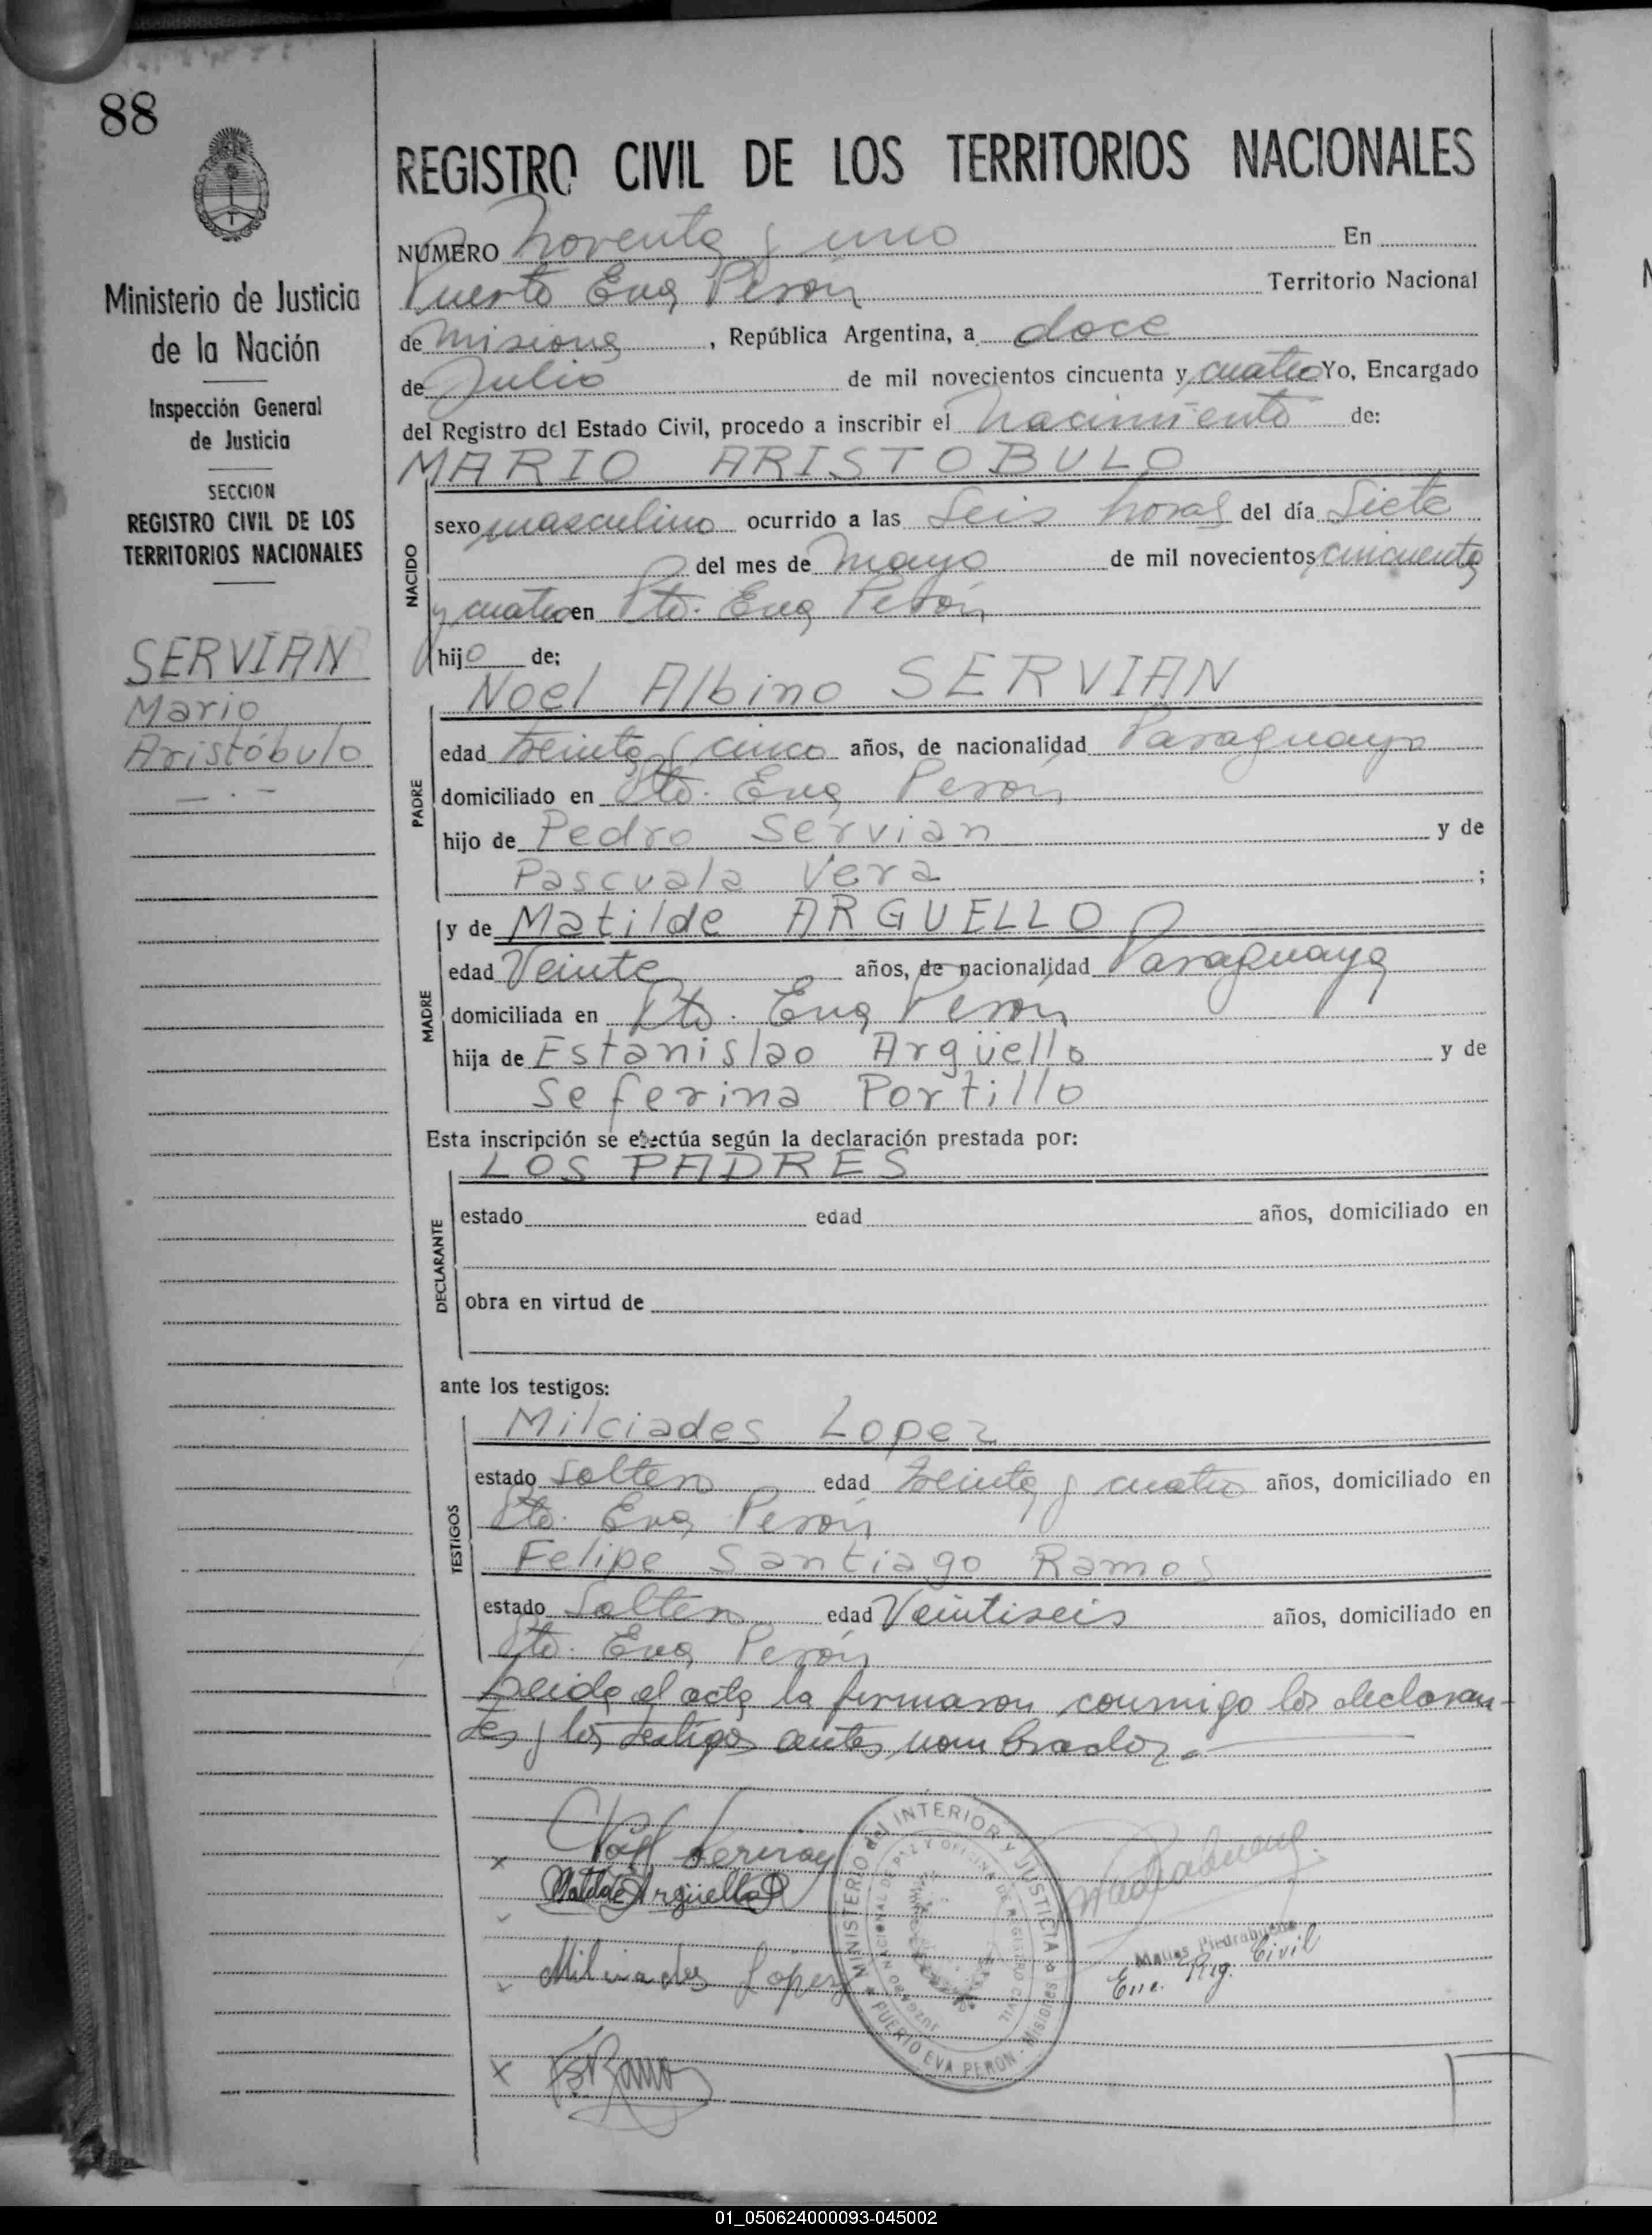 88
Ministerio de Justicia
de la Nación
Inspección General
de Justicia
SECCION
REGISTRO CIVIL DE LOS
TERRITORIOS NACIONALES
SERVIAN
Mario
Aristóbulo
REGISTRO CIVIL DE LOS TERRITORIOS NACIONALES
NUMERO Noventa y uno En
Puerto Eva Perón Territorio Nacional
de Misiones, República Argentina, a doce
de Julio de mil novecientos cincuenta y cuatro Yo, Encargado
del Registro del Estado Civil, procedo a inscribir el Nacimiento de:
MARIO ARISTOBULO
NACIDO
sexo masculino ocurrido a las Seis horas del día Siete
del mes de Mayo de mil novecientos cincuenta
y cuatro en Pto. Eva Perón
hijo de:
Noel Albino SERVIAN
PADRE
edad treinta y cinco años, de nacionalidad Paraguayo
domiciliado en Pto. Eva Perón
hijo de Pedro Servian y de
Pascuala Vera ;
MADRE
y de Matilde ARGUELLO
edad Veinte años, de nacionalidad Paraguaya
domiciliada en Pto. Eva Perón
hija de Estanislao Argüello y de
Seferina Portillo
Esta inscripción se efectúa según la declaración prestada por:
LOS PADRES
DECLARANTE
estado edad años, domiciliado en
obra en virtud de
ante los testigos:
TESTIGOS
Milciades Lopez
estado Soltero edad treinta y cuatro años, domiciliado en
Pto. Eva Perón
Felipe Santiago Ramos
estado Soltero edad Veintiseis años, domiciliado en
Pto. Eva Perón
Leida el acta la firmaron conmigo los declaran-
tes y los testigos antes nombrados.
x Noel Servian
Matilde Argüello
x Milciades Lopez
x F S Ramos
MINISTERIO del INTERIOR Y JUSTICIA
JUZGADO NACIONAL DE PAZ Y OFICINA DE REGISTRO CIVIL
PUERTO EVA PERON - Misiones
Matias Piedrabuena
Enc. Reg. Civil
01_050624000093-045002